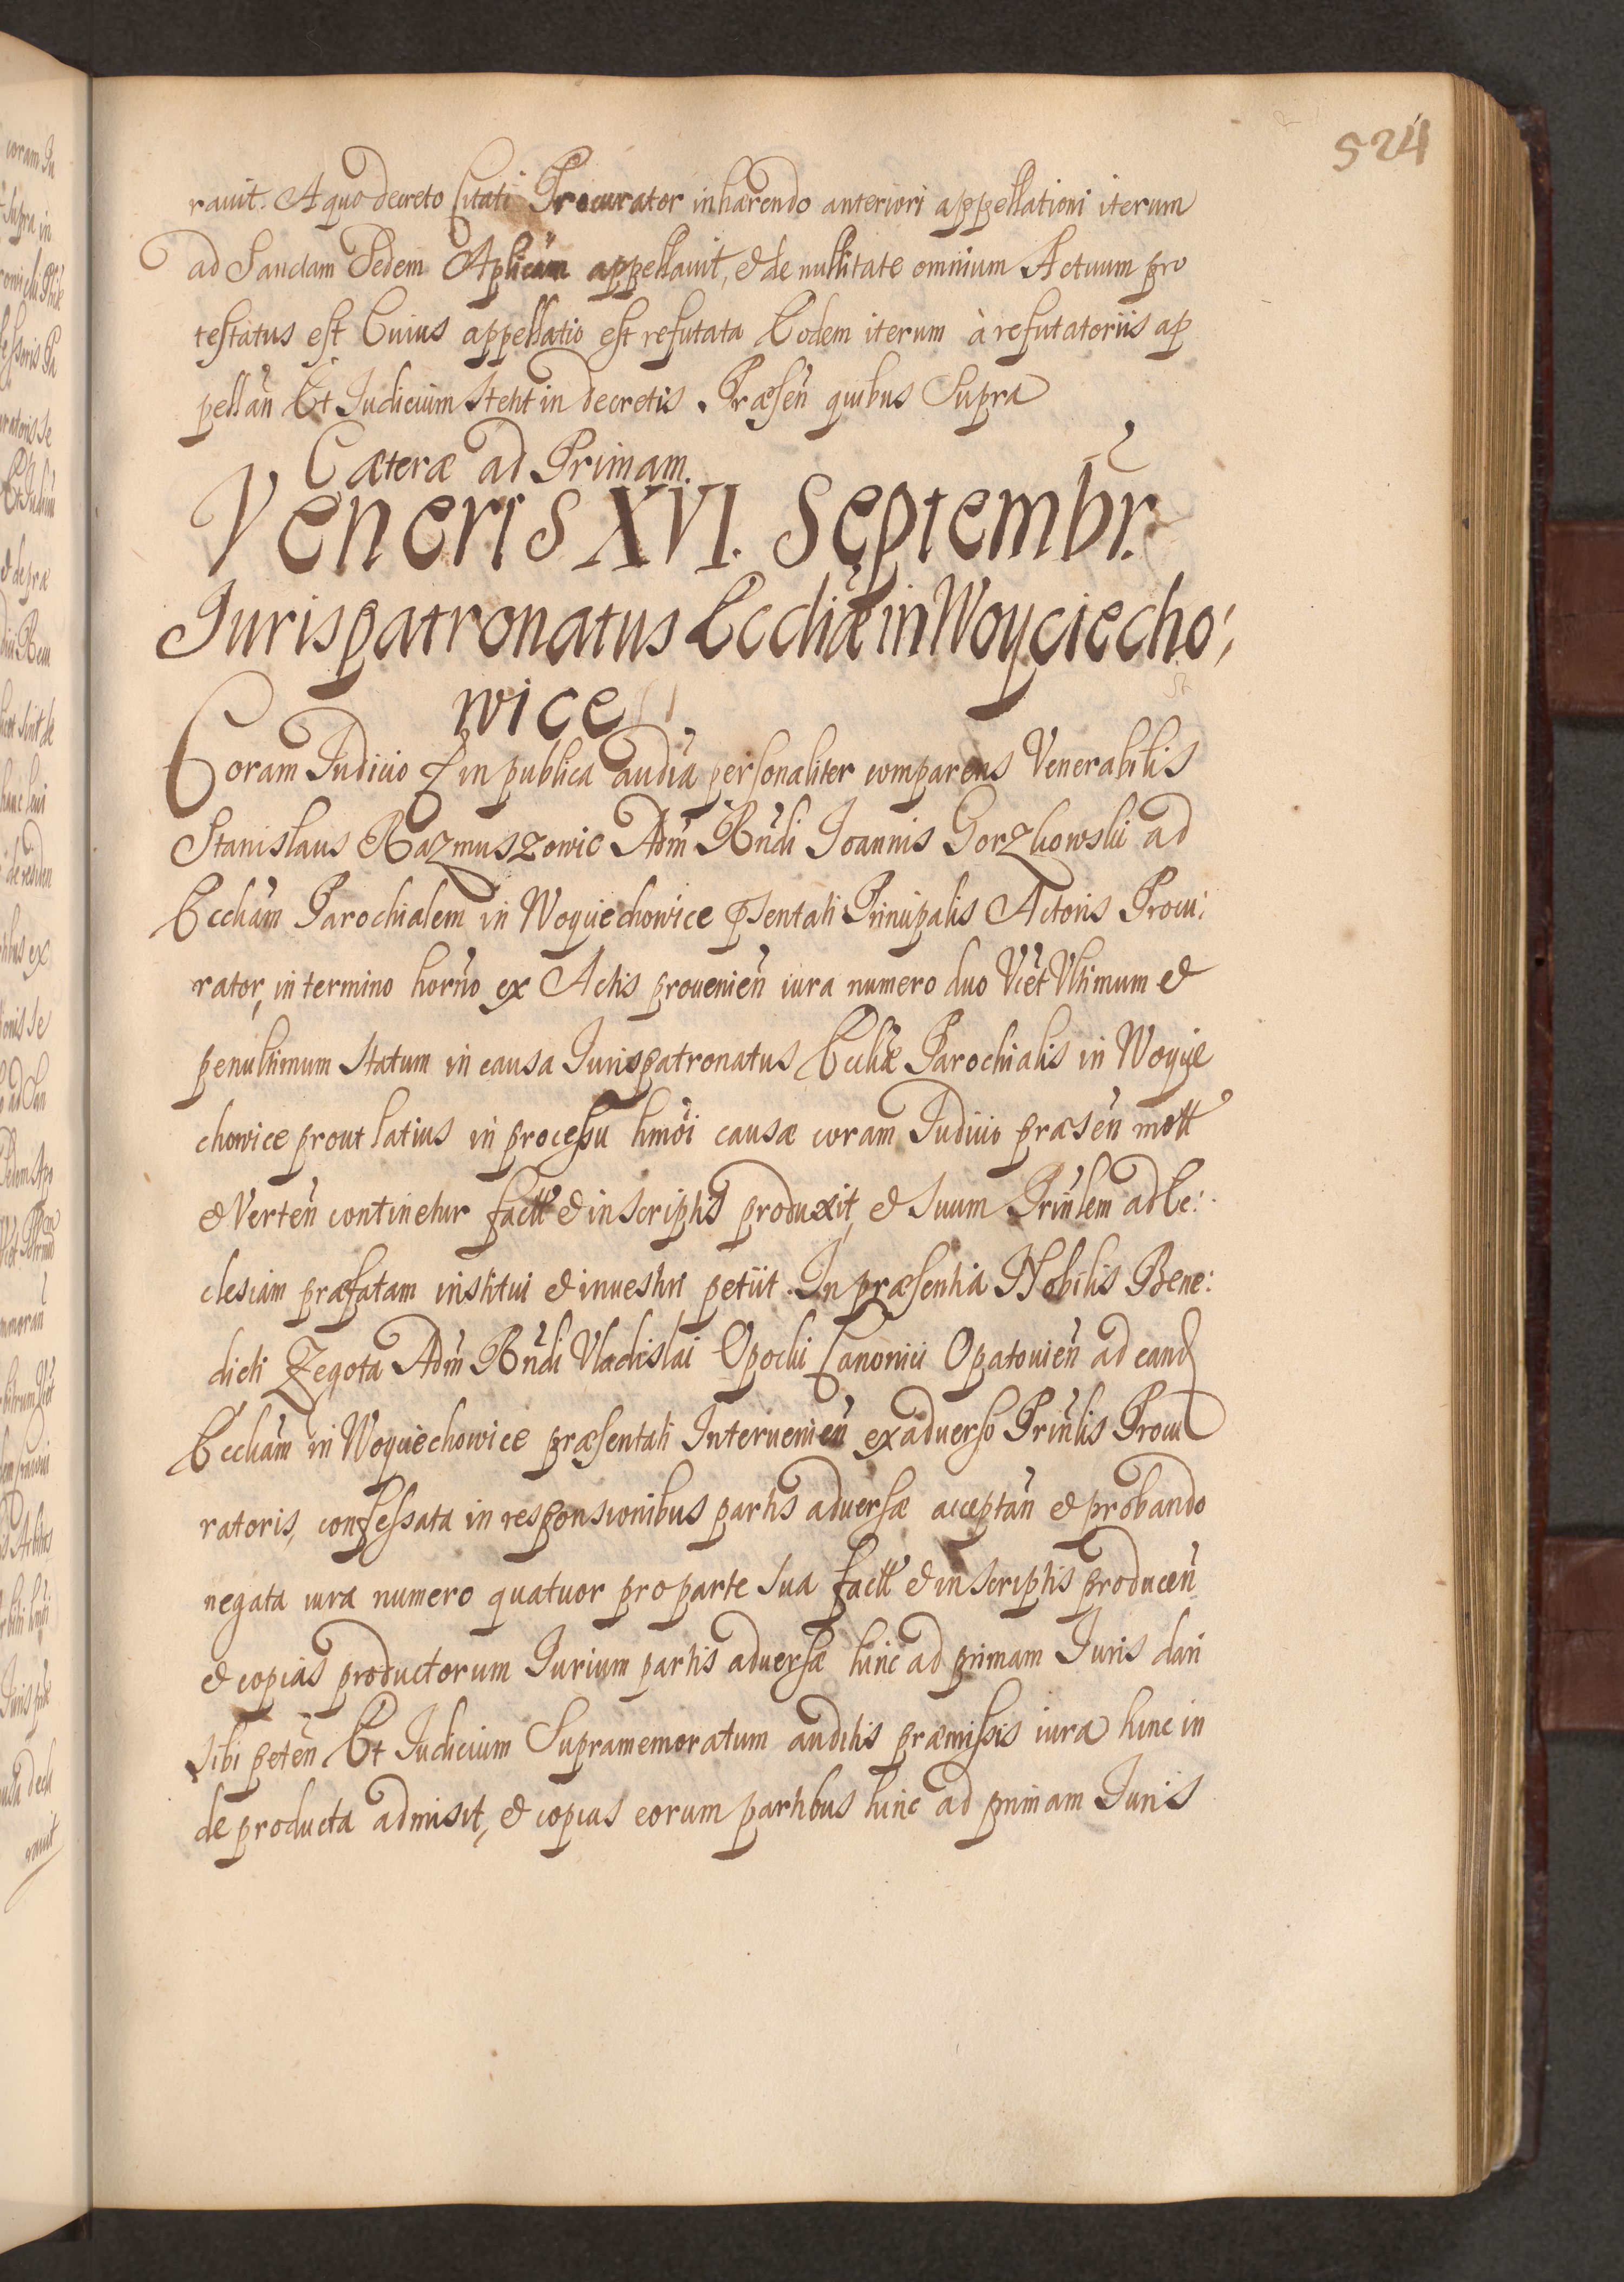 524
rauit. A quo decreto Citati Procurator inhærendo anteriori appellationi iterum
ad Sanctam Sedem Aplicam appellauit, & de nullitate omnium Actuum pro
testatus est Cuius appellatio est refutata Eodem iterum à refutatoriis ap
pellan̄ Et Iudicium stetit in decretis. Præsen̄ quibus Supra
Cæteræ ad Primam.
Veneris XVI. Septembr.
Jurispatronatus Eccliæ in Woyciecho:
wice
Coram Iudicio & in publica audia personaliter comparens Venerabilis
Stanislaus Razmuszowic Adm Rndi Ioannis Gorzkowski ad
Eccliam Parochialem in Woyciechowice psentati Principalis Actoris Procu:
rator, in termino horno ex Actis prouenien̄ iura numero duo Vcet Vltimum &
penultimum statum in causa Jurispatronatus Eccliæ Parochialis in Woycie
chowice prout latius in processu hmoi causæ coram Iudicio præsen̄ mott
& Verten̄ continetur factt & in scriptis produxit, & suum Prinlem ad Ec:
clesiam præfatam institui & inuestiri petiit. In præsentia Nobilis Bene:
dicti Zegota Adm Rndi Vladislai Opocki Canonici Opatouien̄ ad eand
Eccliam in Woyciechowice præsentati Interuenien̄ ex aduerso Prinlis Procu
ratoris, confessata in responsionibus partis aduersæ acceptan̄ & probando
negata iura numero quatuor pro parte sua factt & in scriptis producen̄
& copias productorum Iurium partis aduersæ hinc ad primam Iuris dari
sibi peten̄ Et Iudicium Supramemoratum auditis præmissis iura hinc in
de producta admisit, & copias eorum partibus hinc ad primam Iuris